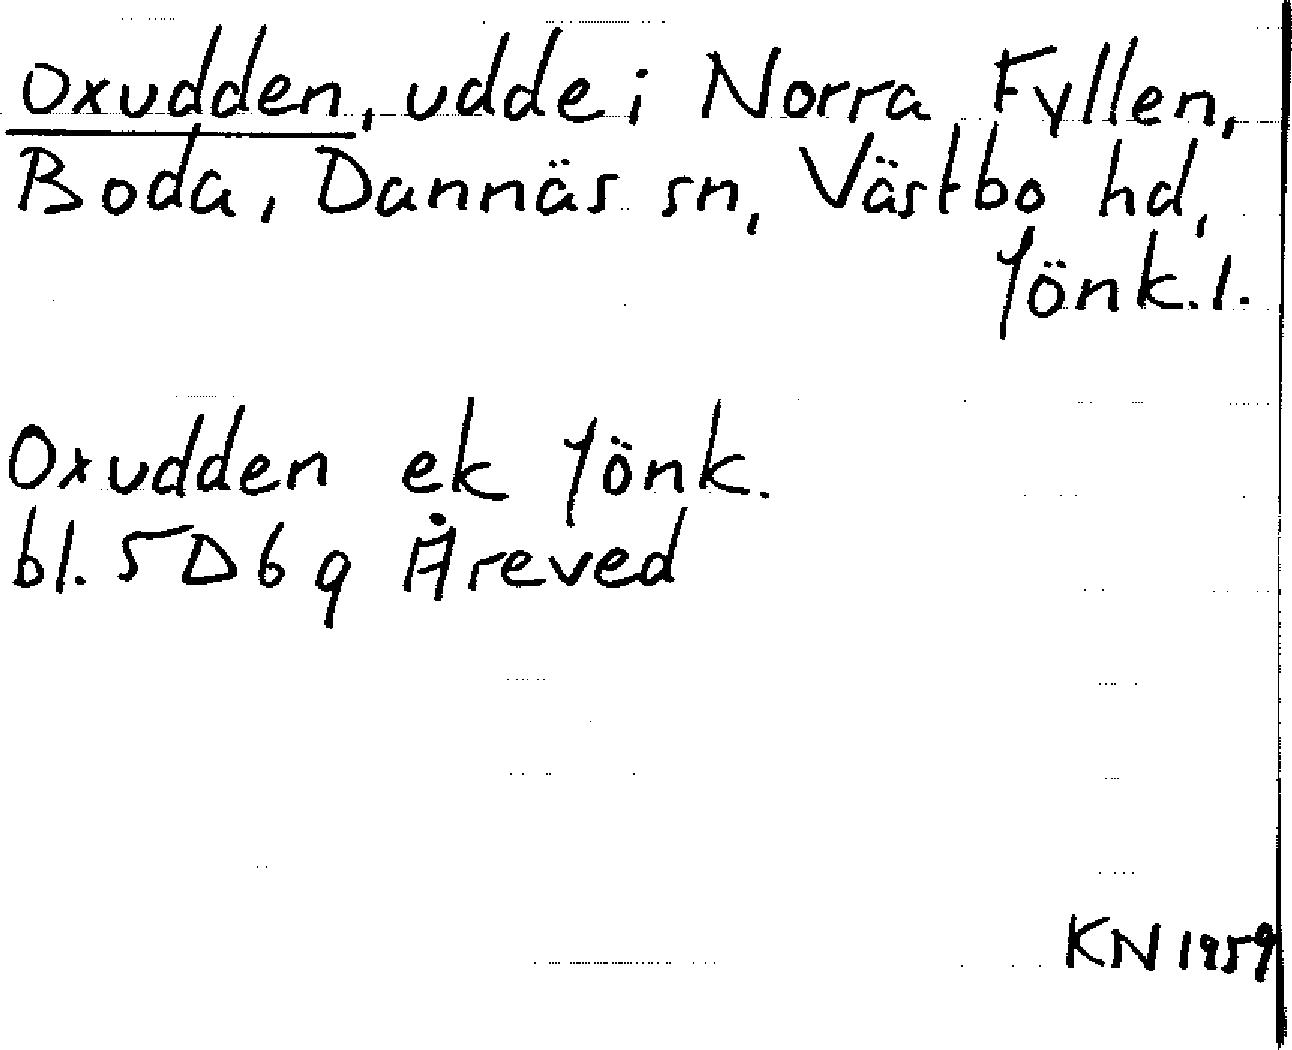 Oxudden, udde i Norra Fyllen,
Boda, Dannäs sn, Västbo hd,
Jönk. l.
Oxudden ek Jönk.
bl. 5D6g Åreved
KN 1959